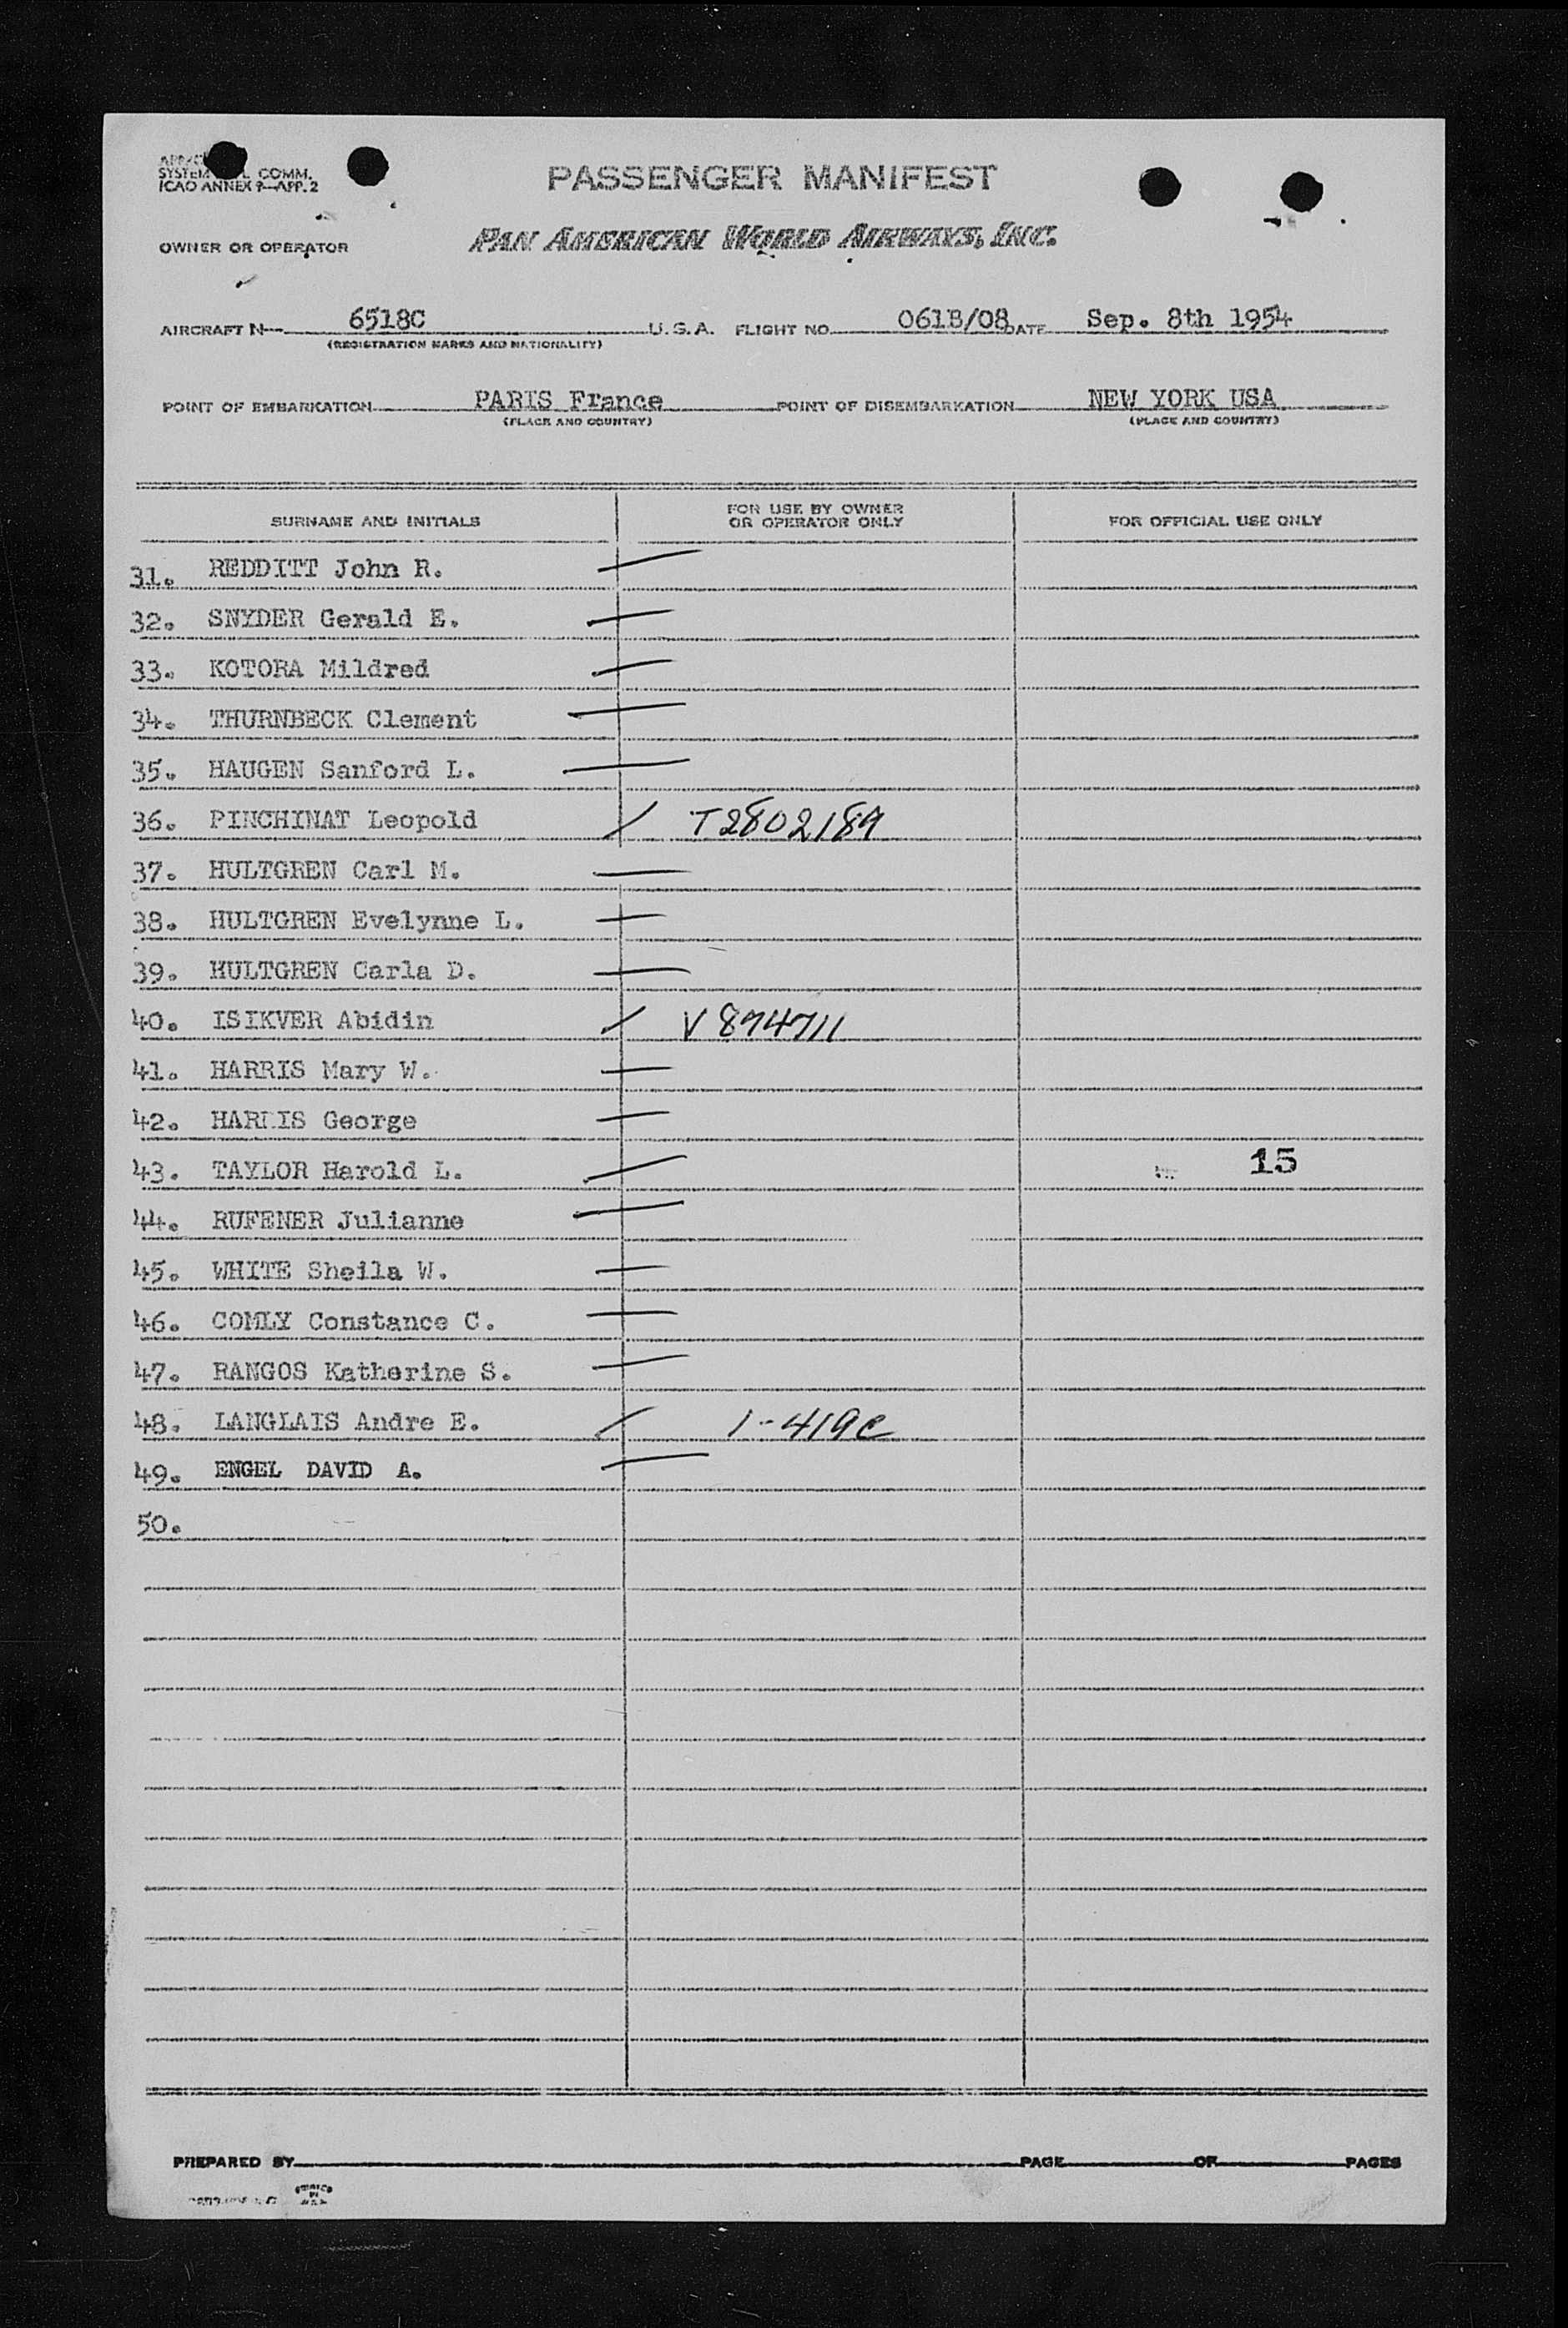 SYSTEM COMM.
ICAO ANNEX 9—APP. 2
PASSENGER MANIFEST
OWNER OR OPERATOR
PAN AMERICAN WORLD AIRWAYS, INC.
AIRCRAFT N 6518C U.S.A. FLIGHT NO. 061B/08 DATE Sep. 8th 1954
(REGISTRATION MARKS AND NATIONALITY)
POINT OF EMBARKATION PARIS France POINT OF DISEMBARKATION NEW YORK USA
(PLACE AND COUNTRY) (PLACE AND COUNTRY)
SURNAME AND INITIALS FOR USE BY OWNER OR OPERATOR ONLY FOR OFFICIAL USE ONLY
31. REDDITT John R.
32. SNYDER Gerald E.
33. KOTORA Mildred
34. THURNBECK Clement
35. HAUGEN Sanford L.
36. PINCHINAT Leopold T2802189
37. HULTGREN Carl M.
38. HULTGREN Evelynne L.
39. HULTGREN Carla D.
40. ISIKVER Abidin V 874711
41. HARRIS Mary W.
42. HARRIS George
43. TAYLOR Harold L. 15
44. RUFENER Julianne
45. WHITE Sheila W.
46. COMLY Constance C.
47. RANGOS Katherine S.
48. LANGLAIS Andre E. 1-419c
49. ENGEL DAVID A.
50.
PREPARED BY PAGE OF PAGES